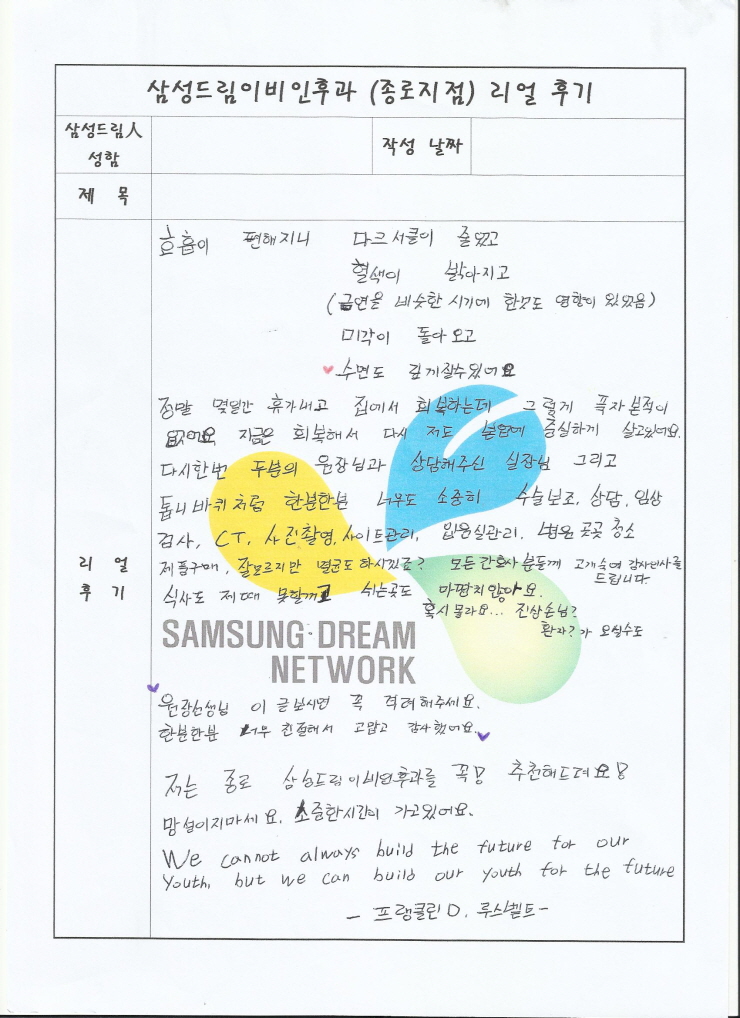 삼성드림이비인후과 (종로지점) 리얼 후기
삼성드림人
성함
작성 날짜
제 목
리 얼
후 기
호흡이 편해지니 다크서클이 줄었고
혈색이 밝아지고
(금연을 비슷한 시기에 한것도 영향이 있었음)
미각이 돌아오고
♥ 수면도 깊게잘수있어요
정말 몇일간 휴가내고 집에서 회복하는데 그렇게 푹자본적이
없어요 지금은 회복해서 다시 저도 본업에 충실하게 살고있어요.
다시한번 두분의 원장님과 상담해주신 실장님 그리고
톱니바퀴처럼 한분한분 너무도 소중히 수술보조, 상담, 임상
검사, CT, 사진촬영, 사이트관리, 입원실관리, 병원 곳곳 청소
제품구매, 잘모르지만 멸균도 하시겠죠? 모든간호사분들께 고개숙여 감사인사를
드립니다.
식사도 제때 못할꺼고 쉬는곳도 마땅치않아요.
혹시 몰라요... 진상손님?
환자?가 오실수도
SAMSUNG DREAM
NETWORK
♥ 원장선생님 이 글보시면 꼭 격려해주세요.
한분한분 너무 친절해서 고맙고 감사했어요. ♥
저는 종로 삼성드림이비인후과를 꼭! 추천해드려요!
망설이지마세요. 소중한시간이 가고있어요.
We cannot always build the future for our
youth, but we can build our youth for the future
- 프랭클린 D. 루스벨트 -